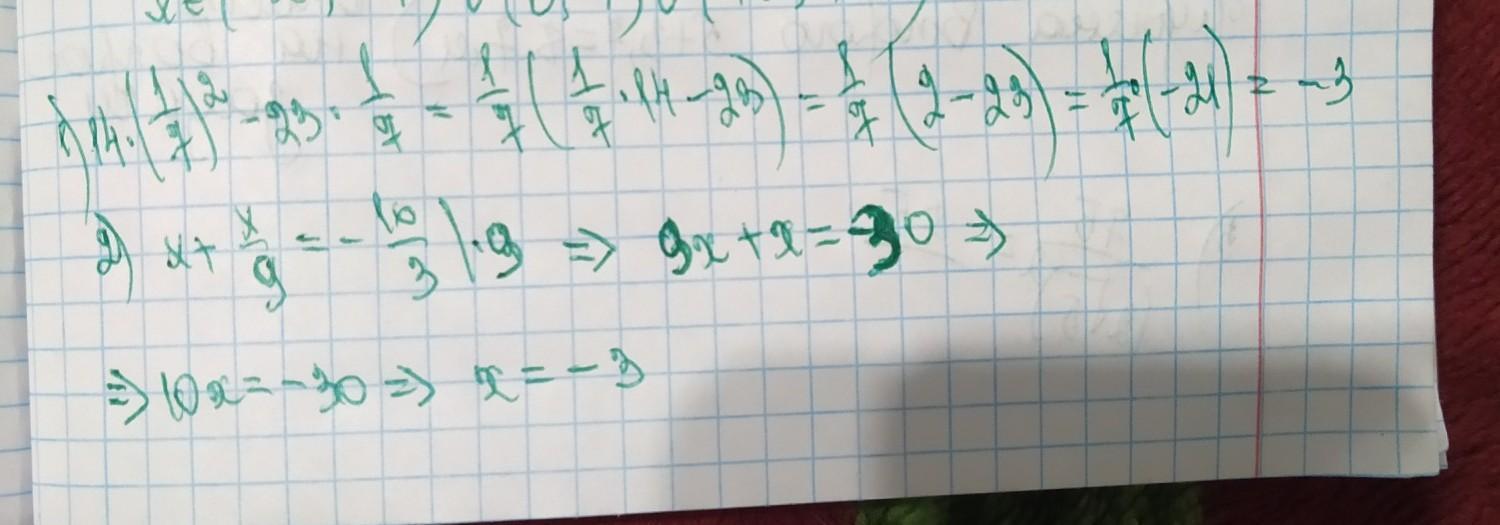 1) 14·(1/7)² - 23·1/7 = 1/7(1/7·14 - 23) = 1/7(2 - 23) = 1/7·(-21) = -3
2) x + x/9 = -10/3 |·9 ⇒ 9x + x = -30 ⇒
⇒ 10x = -30 ⇒ x = -3